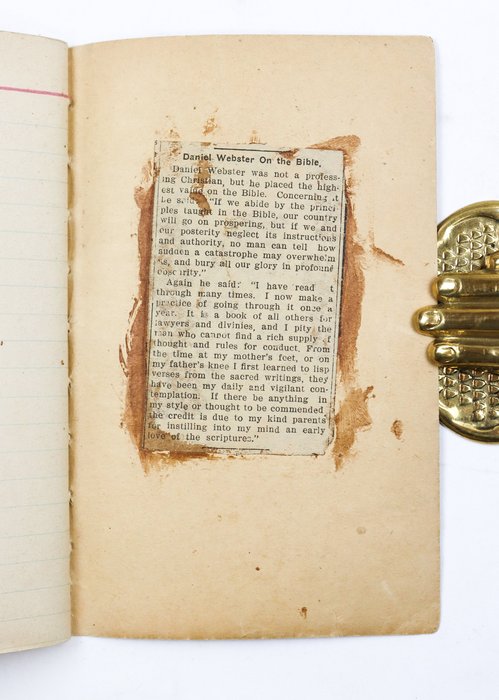 Daniel Webster On the Bible.
Daniel Webster was not a profess-
ing Christian, but he placed the high-
est value on the Bible. Concerning it
he said: "If we abide by the princi
ples taught in the Bible, our country
will go on prospering, but if we and
our posterity neglect its instructions
and authority, no man can tell how
sudden a catastrophe may overwhelm
us, and bury all our glory in profound
obscurity."
Again he said: "I have read it
through many times. I now make a
practice of going through it once a
year. It is a book of all others for
lawyers and divinies, and I pity the
man who cannot find a rich supply of
thought and rules for conduct. From
the time at my mother's feet, or on
my father's knee I first learned to lisp
verses from the sacred writings, they
have been my daily and vigilant con-
templation. If there be anything in
my style or thought to be commended
the credit is due to my kind parents
for instilling into my mind an early
love of the scriptures."